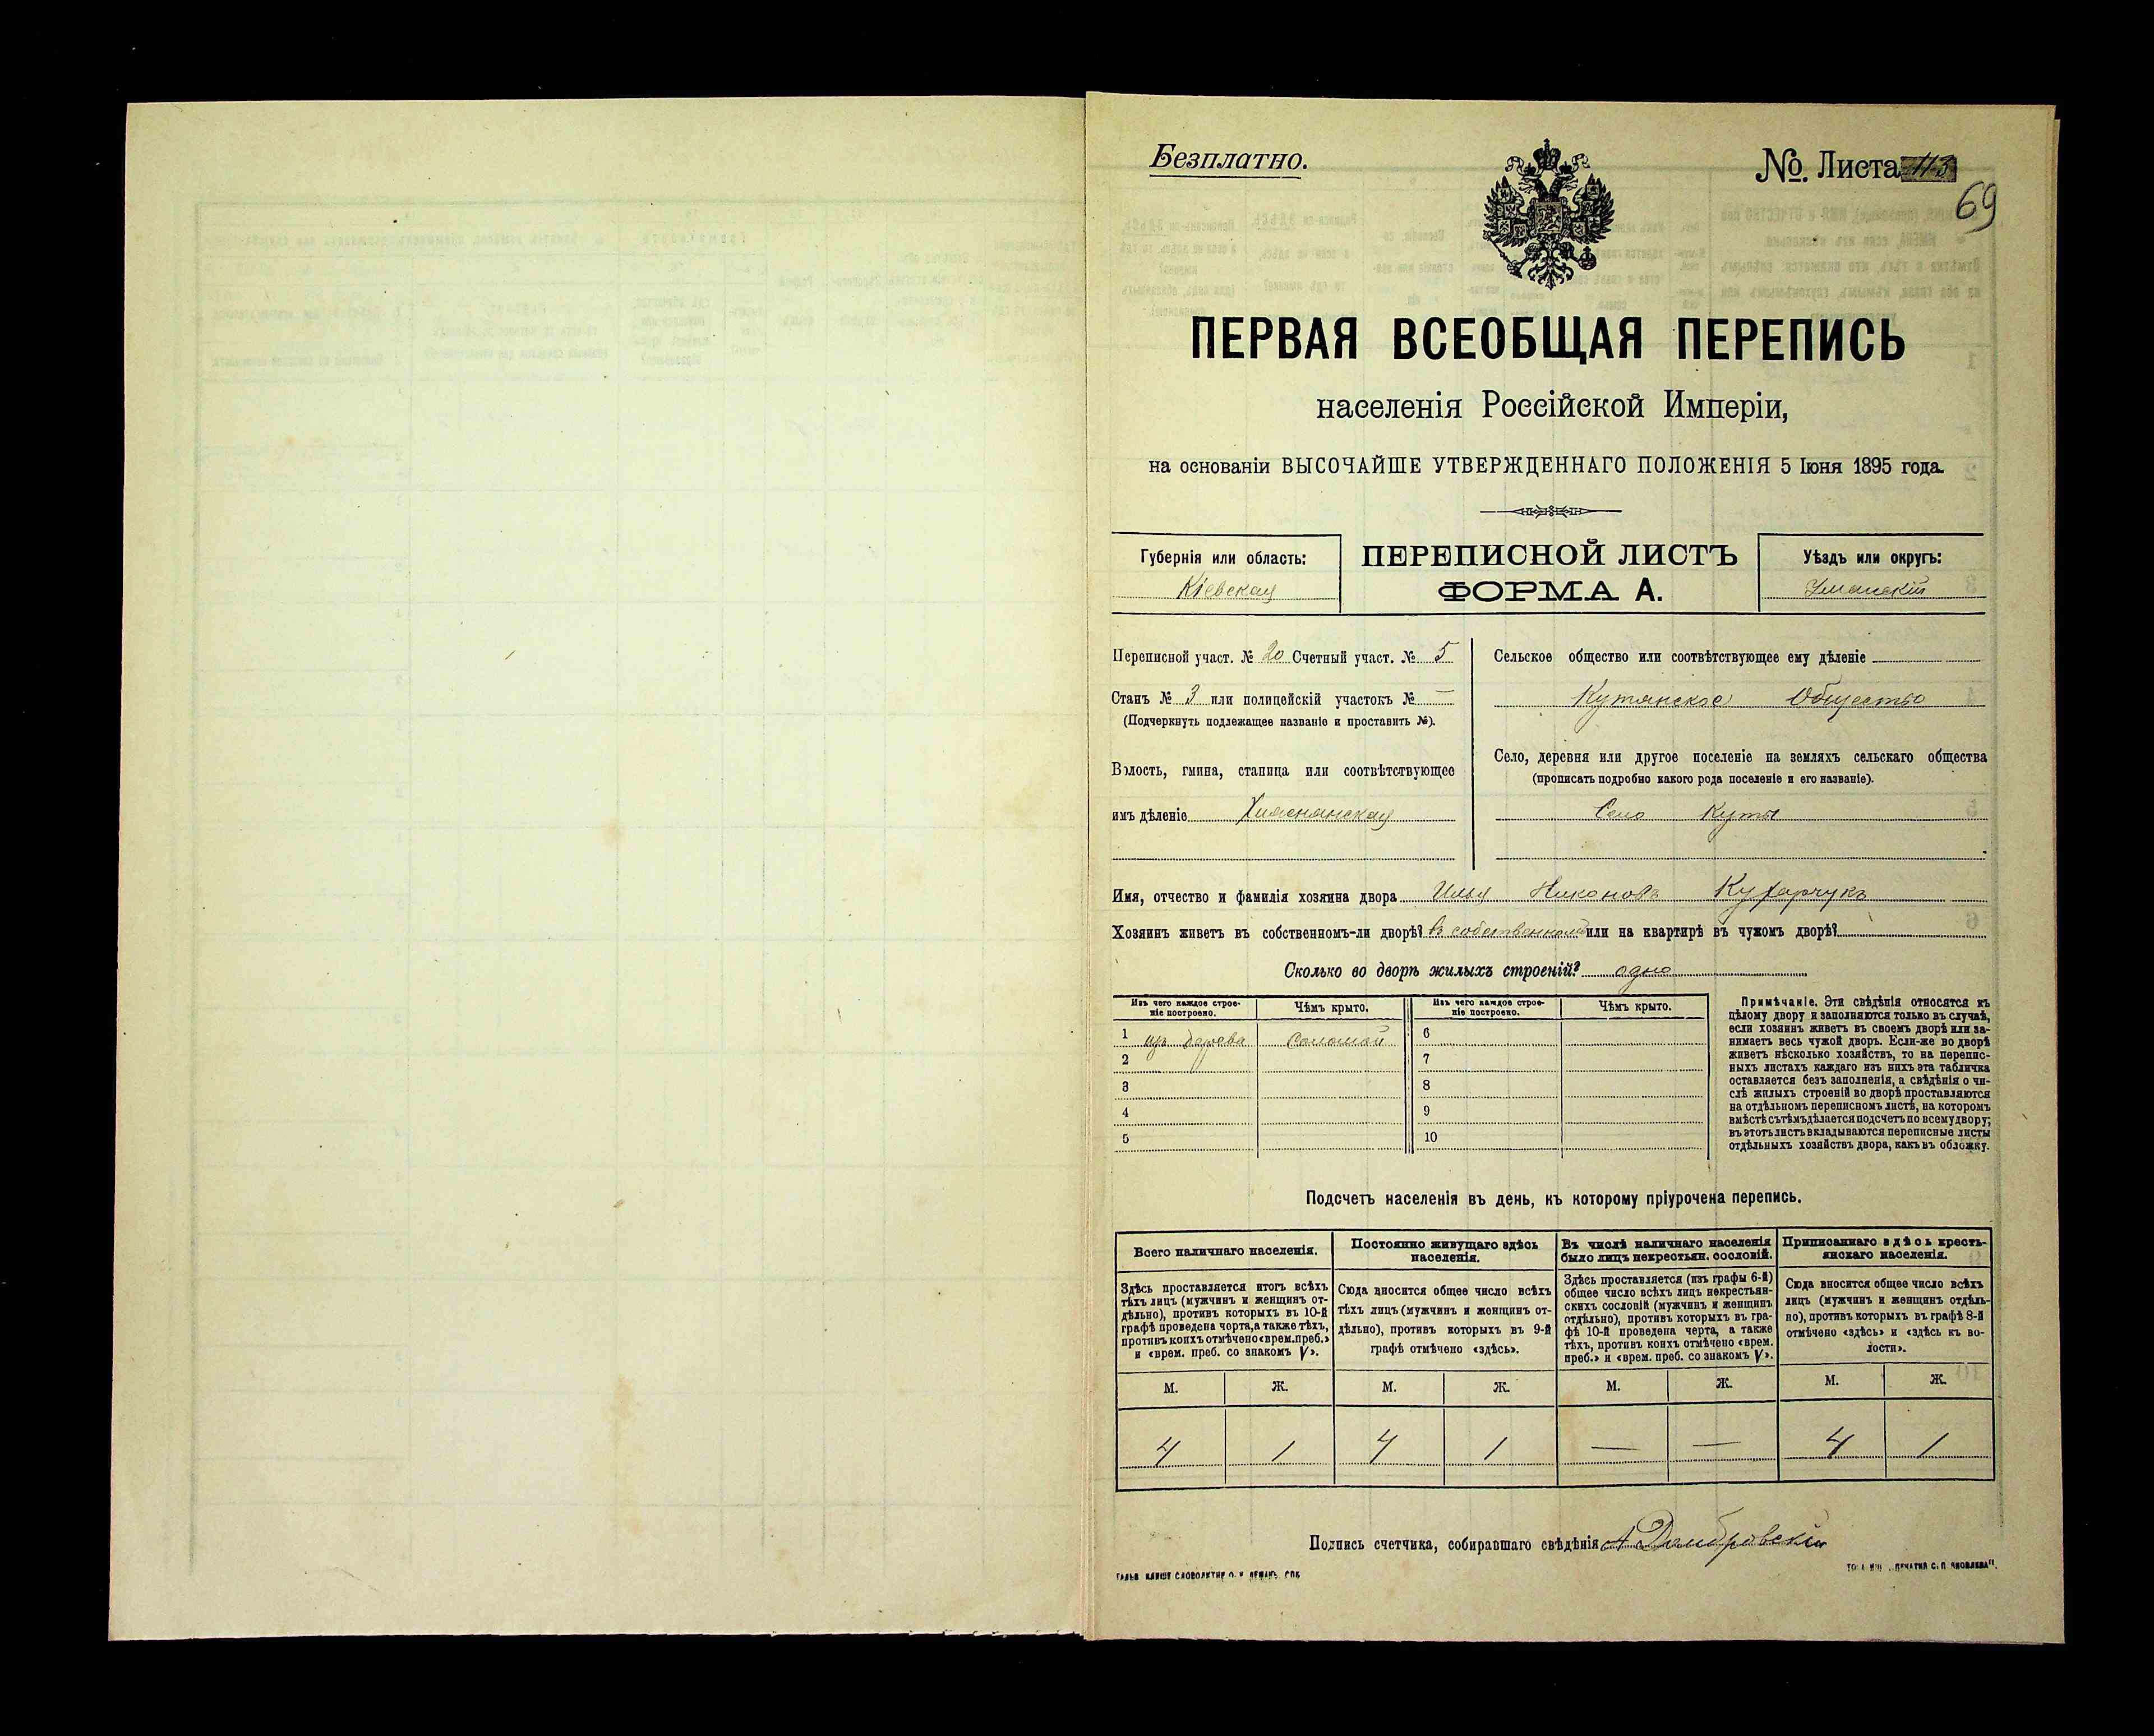 Безплатно.
№. Листа 113
69
ПЕРВАЯ ВСЕОБЩАЯ ПЕРЕПИСЬ
населенія Россійской Имперіи,
на основаніи ВЫСОЧАЙШЕ УТВЕРЖДЕННАГО ПОЛОЖЕНІЯ 5 Іюня 1895 года.
Губернія или область:
Кіевская
ПЕРЕПИСНОЙ ЛИСТЪ
ФОРМА А.
Уѣздъ или округъ:
Уманскій
Переписной участ. № 20 Счетный участ. № 5
Станъ № 3 или полицейскій участокъ № —
(Подчеркнуть подлежащее названіе и проставить №).
Волость, гмина, станица или соотвѣтствующее
имъ дѣленіе
Сельское общество или соотвѣтствующее ему дѣленіе
Кутянское Общество
Село, деревня или другое поселеніе на земляхъ сельскаго общества
(прописать подробно какого рода поселеніе и его названіе).
Село Куты
Имя, отчество и фамилія хозяина двора Илья Никоновъ Кухарчукъ
Хозяинъ живетъ въ собственномъ-ли дворѣ? въ собственномъ или на квартирѣ въ чужомъ дворѣ?
Сколько во дворѣ жилыхъ строеній? одно
Изъ чего каждое строе-
ніе построено.
Чѣмъ крыто.
Изъ чего каждое строе-
ніе построено.
Чѣмъ крыто.
1 изъ дерева Соломой 6
2 7
3 8
4 9
5 10
Примѣчаніе. Эти свѣдѣнія относятся къ
цѣлому двору и заполняются только въ случаѣ,
если хозяинъ живетъ въ своемъ дворѣ или за-
нимаетъ весь чужой дворъ. Если-же во дворѣ
живетъ нѣсколько хозяйствъ, то на перепис-
ныхъ листахъ каждаго изъ нихъ эта табличка
оставляется безъ заполненія, а свѣдѣнія о чи-
слѣ жилыхъ строеній во дворѣ проставляются
на отдѣльномъ переписномъ листѣ, на которомъ
вмѣстѣ съ тѣмъ дѣлается подсчетъ по всему двору;
въ этотъ листъ вкладываются переписные листы
отдѣльныхъ хозяйствъ двора, какъ въ обложку.
Подсчетъ населенія въ день, къ которому пріурочена перепись.
Всего наличнаго населенія.
Здѣсь проставляется итогъ всѣхъ
тѣхъ лицъ (мужчинъ и женщинъ от-
дѣльно), противъ которыхъ въ 10-й
графѣ проведена черта, а также тѣхъ,
противъ коихъ отмѣчено «врем. преб.»
и «врем. преб. со знакомъ V».
Постоянно живущаго здѣсь
населенія.
Сюда вносится общее число всѣхъ
тѣхъ лицъ (мужчинъ и женщинъ от-
дѣльно), противъ которыхъ въ 9-й
графѣ отмѣчено «здѣсь».
Въ числѣ наличнаго населенія
было лицъ некрестьян. сословій.
Здѣсь проставляется (изъ графы 6-й)
общее число всѣхъ лицъ некрестьян-
скихъ сословій (мужчинъ и женщинъ
отдѣльно), противъ которыхъ въ гра-
фѣ 10-й проведена черта, а также
тѣхъ, противъ коихъ отмѣчено «врем.
преб.» и «врем. преб. со знакомъ V».
Приписаннаго здѣсь кресть-
янскаго населенія.
Сюда вносится общее число всѣхъ
лицъ (мужчинъ и женщинъ отдѣль-
но), противъ которыхъ въ графѣ 8-й
отмѣчено «здѣсь» и «здѣсь къ во-
лости».
М. Ж. М. Ж. М. Ж. М. Ж.
4 1 4 1 — — 4 1
Подпись счетчика, собиравшаго свѣдѣнія А Домбровскій